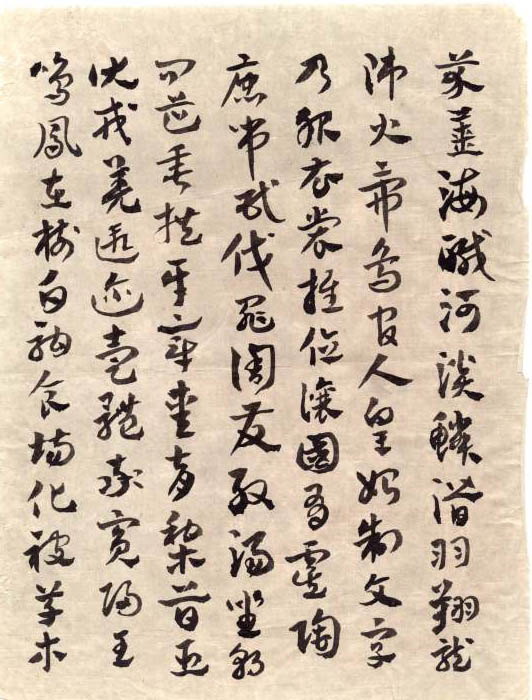 芥薑海鹹河淡鱗潛羽翔龍
師火帝鳥官人皇始制文字
乃服衣裳推位讓國有虞陶
唐弔民伐罪周發殷湯坐朝
問道垂拱平章愛育黎首臣
伏戎羌遐邇壹體率賓歸王
鳴鳳在樹白駒食場化被草木